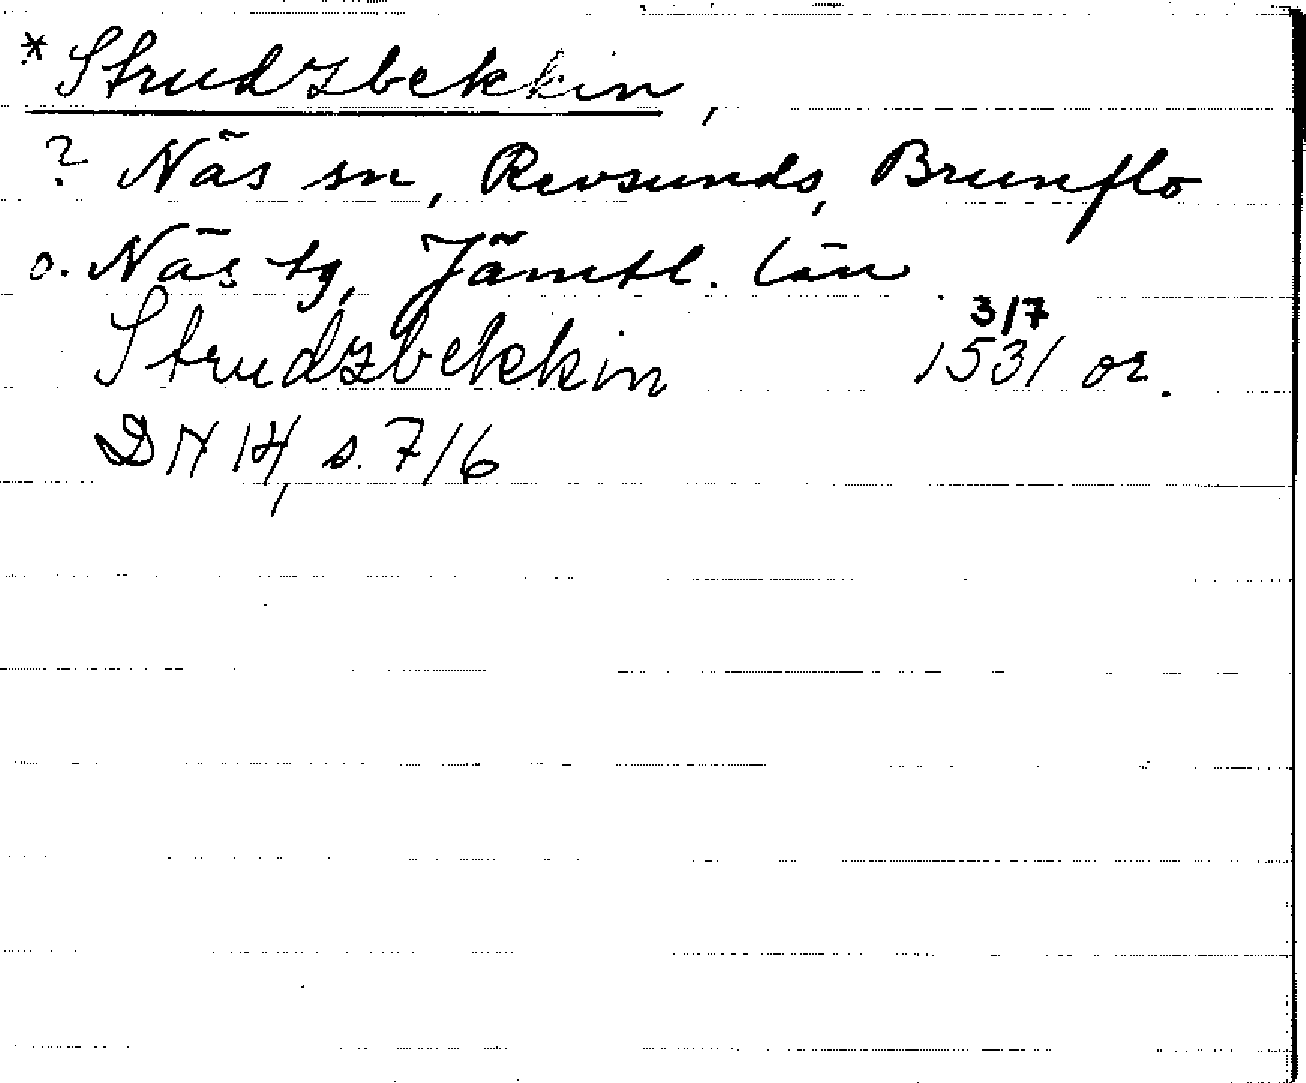 *Strudzbekkin,
? Näs sn, Revsunds, Brunflo
o. Näs tg, Jämtl. län
Strudzbekkin 3/7 1531 or.
DN 14, s. 716